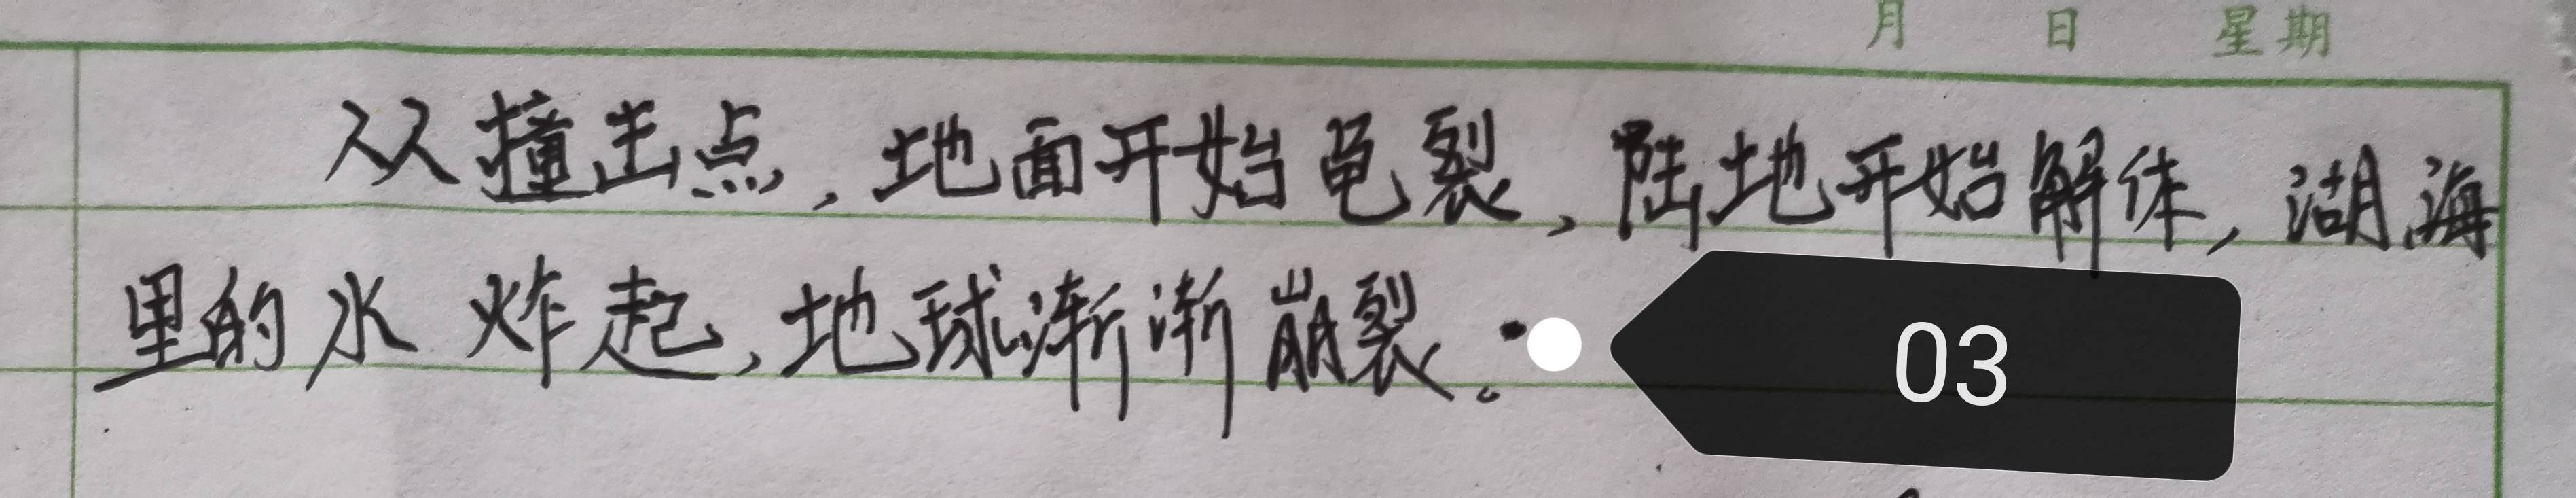 月 日 星期
从撞击点，地面开始龟裂，陆地开始解体，湖海
里的水炸起，地球渐渐崩裂。
03